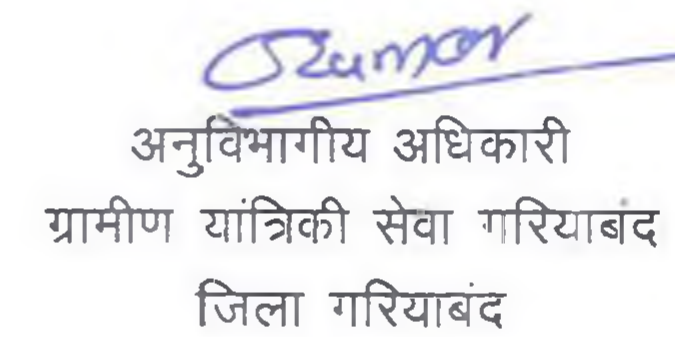 अनुविभागीय अधिकारी
ग्रामीण यांत्रिकी सेवा गरियाबंद
जिला गरियाबंद